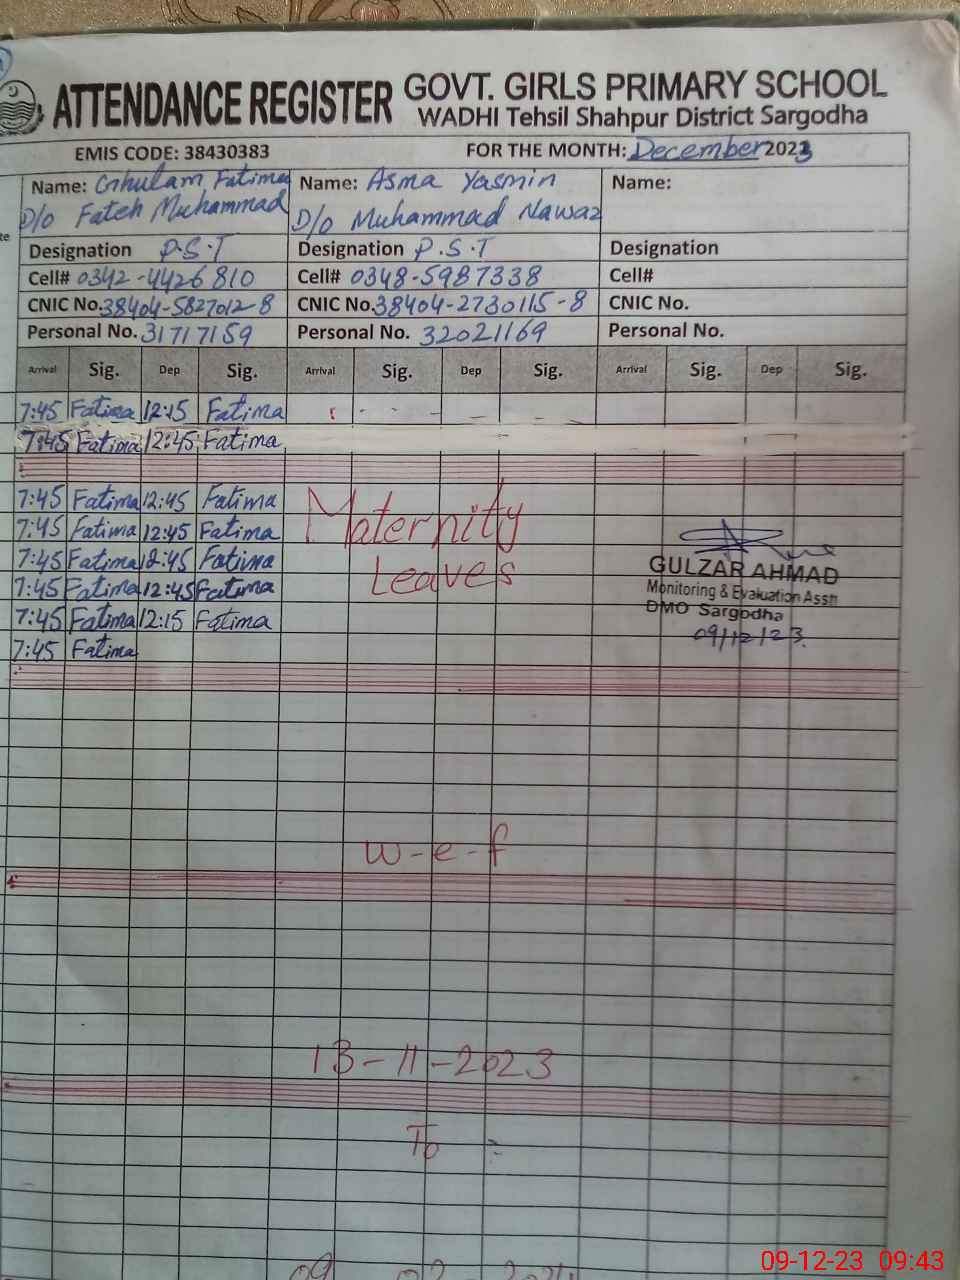 ATTENDANCE REGISTER GOVT. GIRLS PRIMARY SCHOOL
WADHI Tehsil Shahpur District Sargodha
EMIS CODE: 38430383 FOR THE MONTH: December 2023
Name: Ghulam Fatima Name: Asma Yasmin Name:
D/o Fateh Muhammad D/o Muhammad Nawaz
Designation P.S.T Designation P.S.T Designation
Cell# 0342-4426810 Cell# 0348-5987338 Cell#
CNIC No. 38404-5827012-8 CNIC No. 38404-2730115-8 CNIC No.
Personal No. 31717159 Personal No. 32021169 Personal No.
Arrival Sig. Dep Sig. Arrival Sig. Dep Sig. Arrival Sig. Dep Sig.
7:45 Fatima 12:15 Fatima
7:45 Fatima 12:45 Fatima
7:45 Fatima 12:45 Fatima
7:45 Fatima 12:45 Fatima
7:45 Fatima 12:45 Fatima
7:45 Fatima 12:45 Fatima
7:45 Fatima 12:15 Fatima
7:45 Fatima
Maternity
Leaves
GULZAR AHMAD
Monitoring & Evaluation Asstt
DMO Sargodha
09/12/23.
w-e-f
13-11-2023
To
09-12-23 09:43